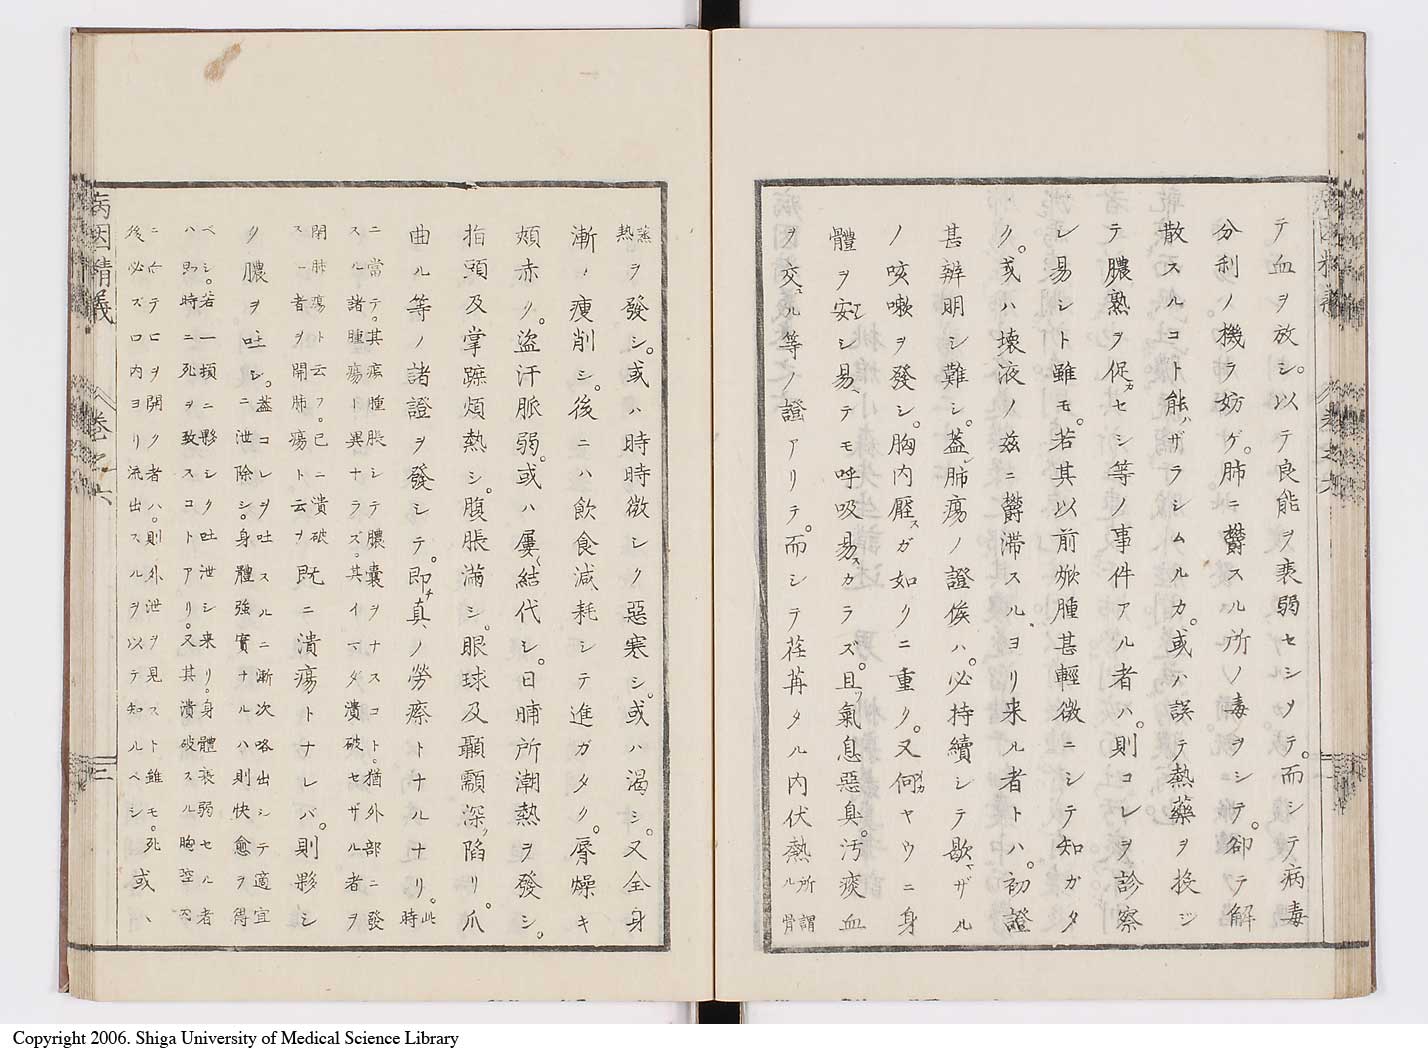 テ血ヲ放シ。以テ良能ヲ衰弱セシヲテ。而シテ病毒
分利ノ機ヲ妨ゲ。肺ニ欝スル所ノ毒ヲシテ。卻テ解
散スルコト能ハザラシムルカ。或ハ誤テ熱藥ヲ投ジ
テ膿熟ヲ促カセシ等ノ事件アル者ハ。則コレヲ診察
シ易シト雖モ。若其以前焮腫甚輕微ニシテ知ガタ
ク。或ハ壊液ノ玆ニ欝滞スルヨリ来ル者トハ。初證
甚辨明シ難シ。蓋肺瘍ノ證候ハ。必持續シテ歇ヤザル
ノ咳嗽ヲ發シ。胸内壓スガ如クニ重ク。又何ヤウニ身
體ヲ安シ易ヘテモ呼吸易スカラズ。且ツ氣息惡臭。汚痰血
ヲ交ユル等ノ證アリテ。而シテ荏苒タル内伏熱所謂骨
蒸熱ヲ發シ。或ハ時時微シク惡寒シ。或ハ渇シ。又全身
漸ヽ痩削シ。後ニハ飲食減耗シテ進ガタク。脣燥キ
頰赤ク。盗汗脈弱。或ハ屢〻結代シ。日晡所潮熱ヲ發シ。
指頭及掌蹠煩熱シ。腹脹滿シ。眼球及顳顬深ク陷リ。爪
曲ル等ノ諸證ヲ發シテ。即チ真ノ勞瘵トナルナリ。此時
ニ當テ。其瘍腫脹シテ膿嚢ヲナスコト。猶外部ニ發
スル諸腫瘍ト異ナラズ。其イマダ潰破セザル者ヲ
閉肺瘍ト云フ。已ニ潰破
スル者ヲ開肺瘍ト云ヲ既ニ潰瘍トナレバ。則夥シ
ク膿ヲ吐シ。蓋コレヲ吐スルニ漸次咯出シテ適宜
ニ泄除シ。身體強實ナルハ則快愈ヲ得
ベシ。若一頓ニ夥シク吐泄シ来リ。身體衰弱セル者
ハ即時ニ死ヲ致スコトアリ。又其潰破スル胸腔内
ニ於テ口ヲ開ク者ハ。則外泄ヲ見ズト雖モ。死
後必ズ口内ヨリ流出スルヲ以テ知ルベシ或ハ
病因精義
卷之六
三